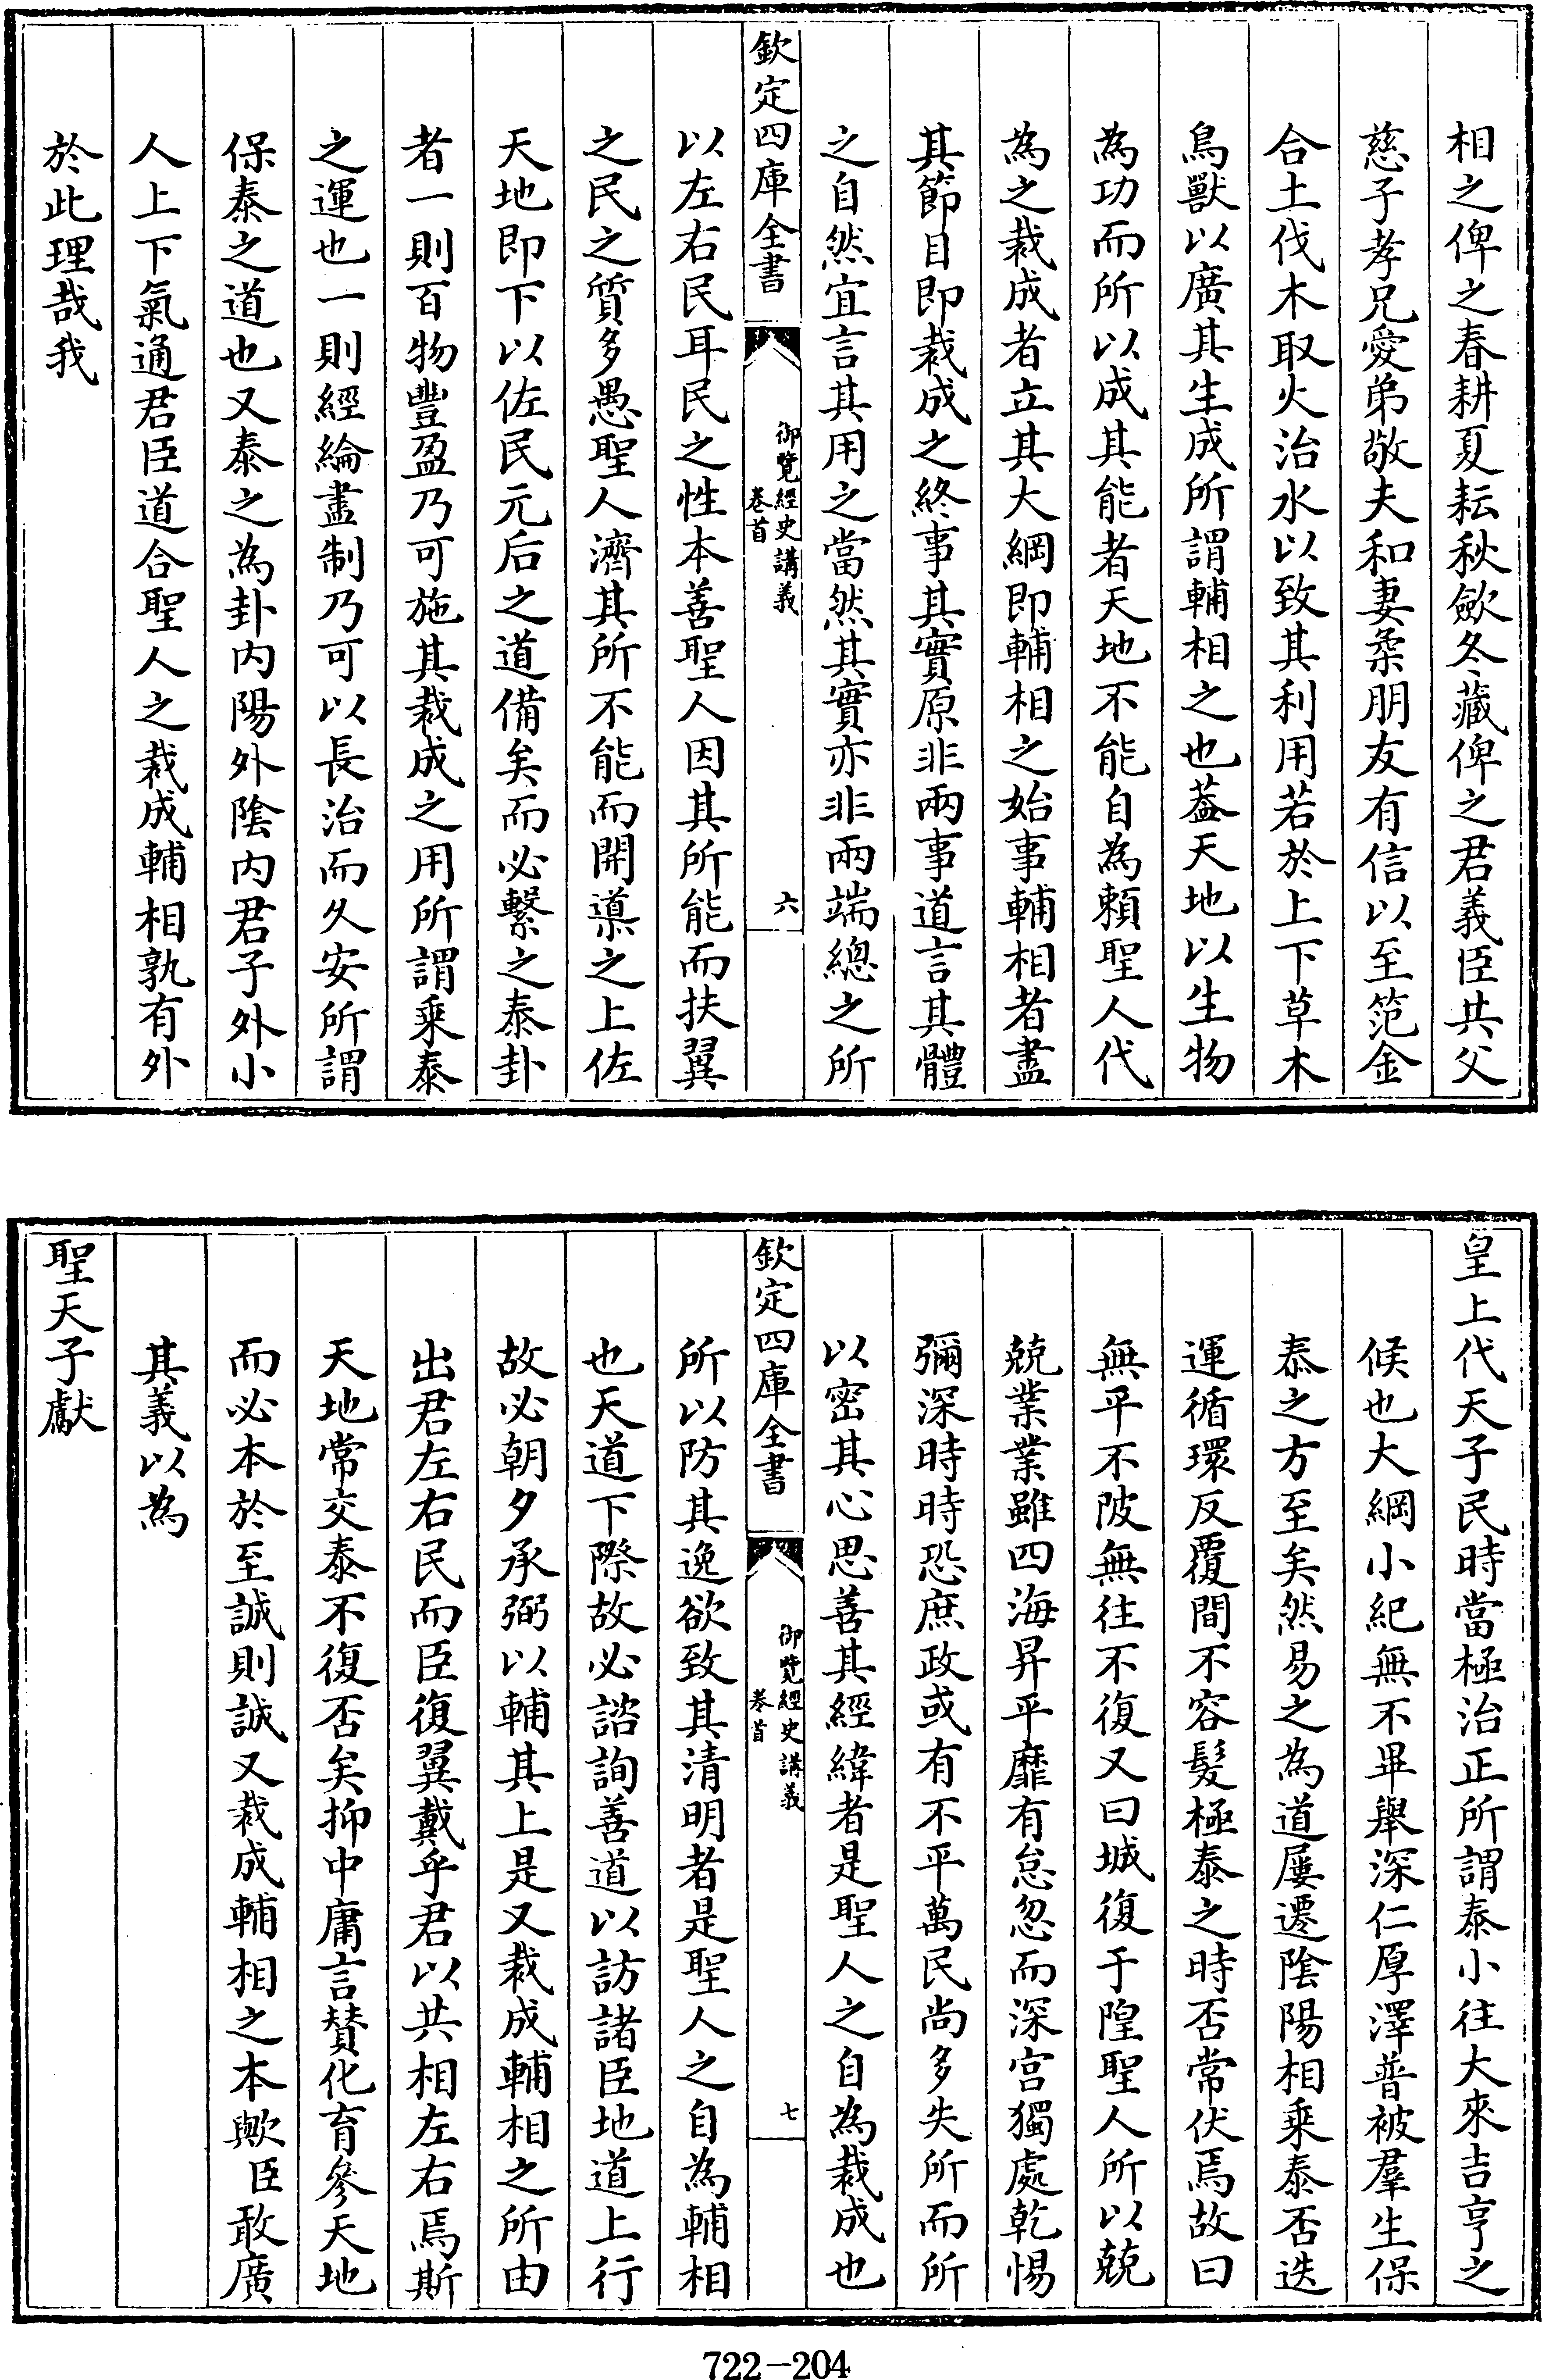 相之俾之春耕夏耘秋歛冬藏俾之君義臣共父
慈子孝兄愛弟敬夫和妻柔朋友有信以至笵金
合土伐木取火治水以致其利用若於上下草木
鳥獸以廣其生成所謂輔相之也葢天地以生物
為功而所以成其能者天地不能自為頼聖人代
為之裁成者立其大綱即輔相之始事輔相者盡
其節目即裁成之終事其實原非兩事道言其體
之自然宜言其用之當然其實亦非兩端總之所
欽定四庫全書
御覽經史講義
卷首
六
以左右民耳民之性本善聖人因其所能而扶翼
之民之質多愚聖人濟其所不能而開導之上佐
天地即下以佐民元后之道備矣而必繫之泰卦
者一則百物豐盈乃可施其裁成之用所謂乗泰
之運也一則經綸盡制乃可以長治而久安所謂
保泰之道也又泰之為卦内陽外陰内君子外小
人上下氣通君臣道合聖人之裁成輔相孰有外
於此理哉我
皇上代天子民時當極治正所謂泰小往大來吉亨之
候也大綱小紀無不畢舉深仁厚澤普被羣生保
泰之方至矣然易之為道屢遷陰陽相乗泰否迭
運循環反覆間不容髮極泰之時否常伏焉故曰
無平不陂無往不復又曰城復于隍聖人所以兢
兢業業雖四海昇平靡有怠忽而深宫獨處乾惕
彌深時時恐庶政或有不平萬民尚多失所而所
以密其心思善其經緯者是聖人之自為裁成也
欽定四庫全書
御覽經史講義
卷首
七
所以防其逸欲致其清明者是聖人之自為輔相
也天道下際故必諮詢善道以訪諸臣地道上行
故必朝夕承弼以輔其上是又裁成輔相之所由
出君左右民而臣復翼戴乎君以共相左右焉斯
天地常交泰不復否矣抑中庸言賛化育參天地
而必本於至誠則誠又裁成輔相之本歟臣敢廣
其義以為
聖天子獻
722-204